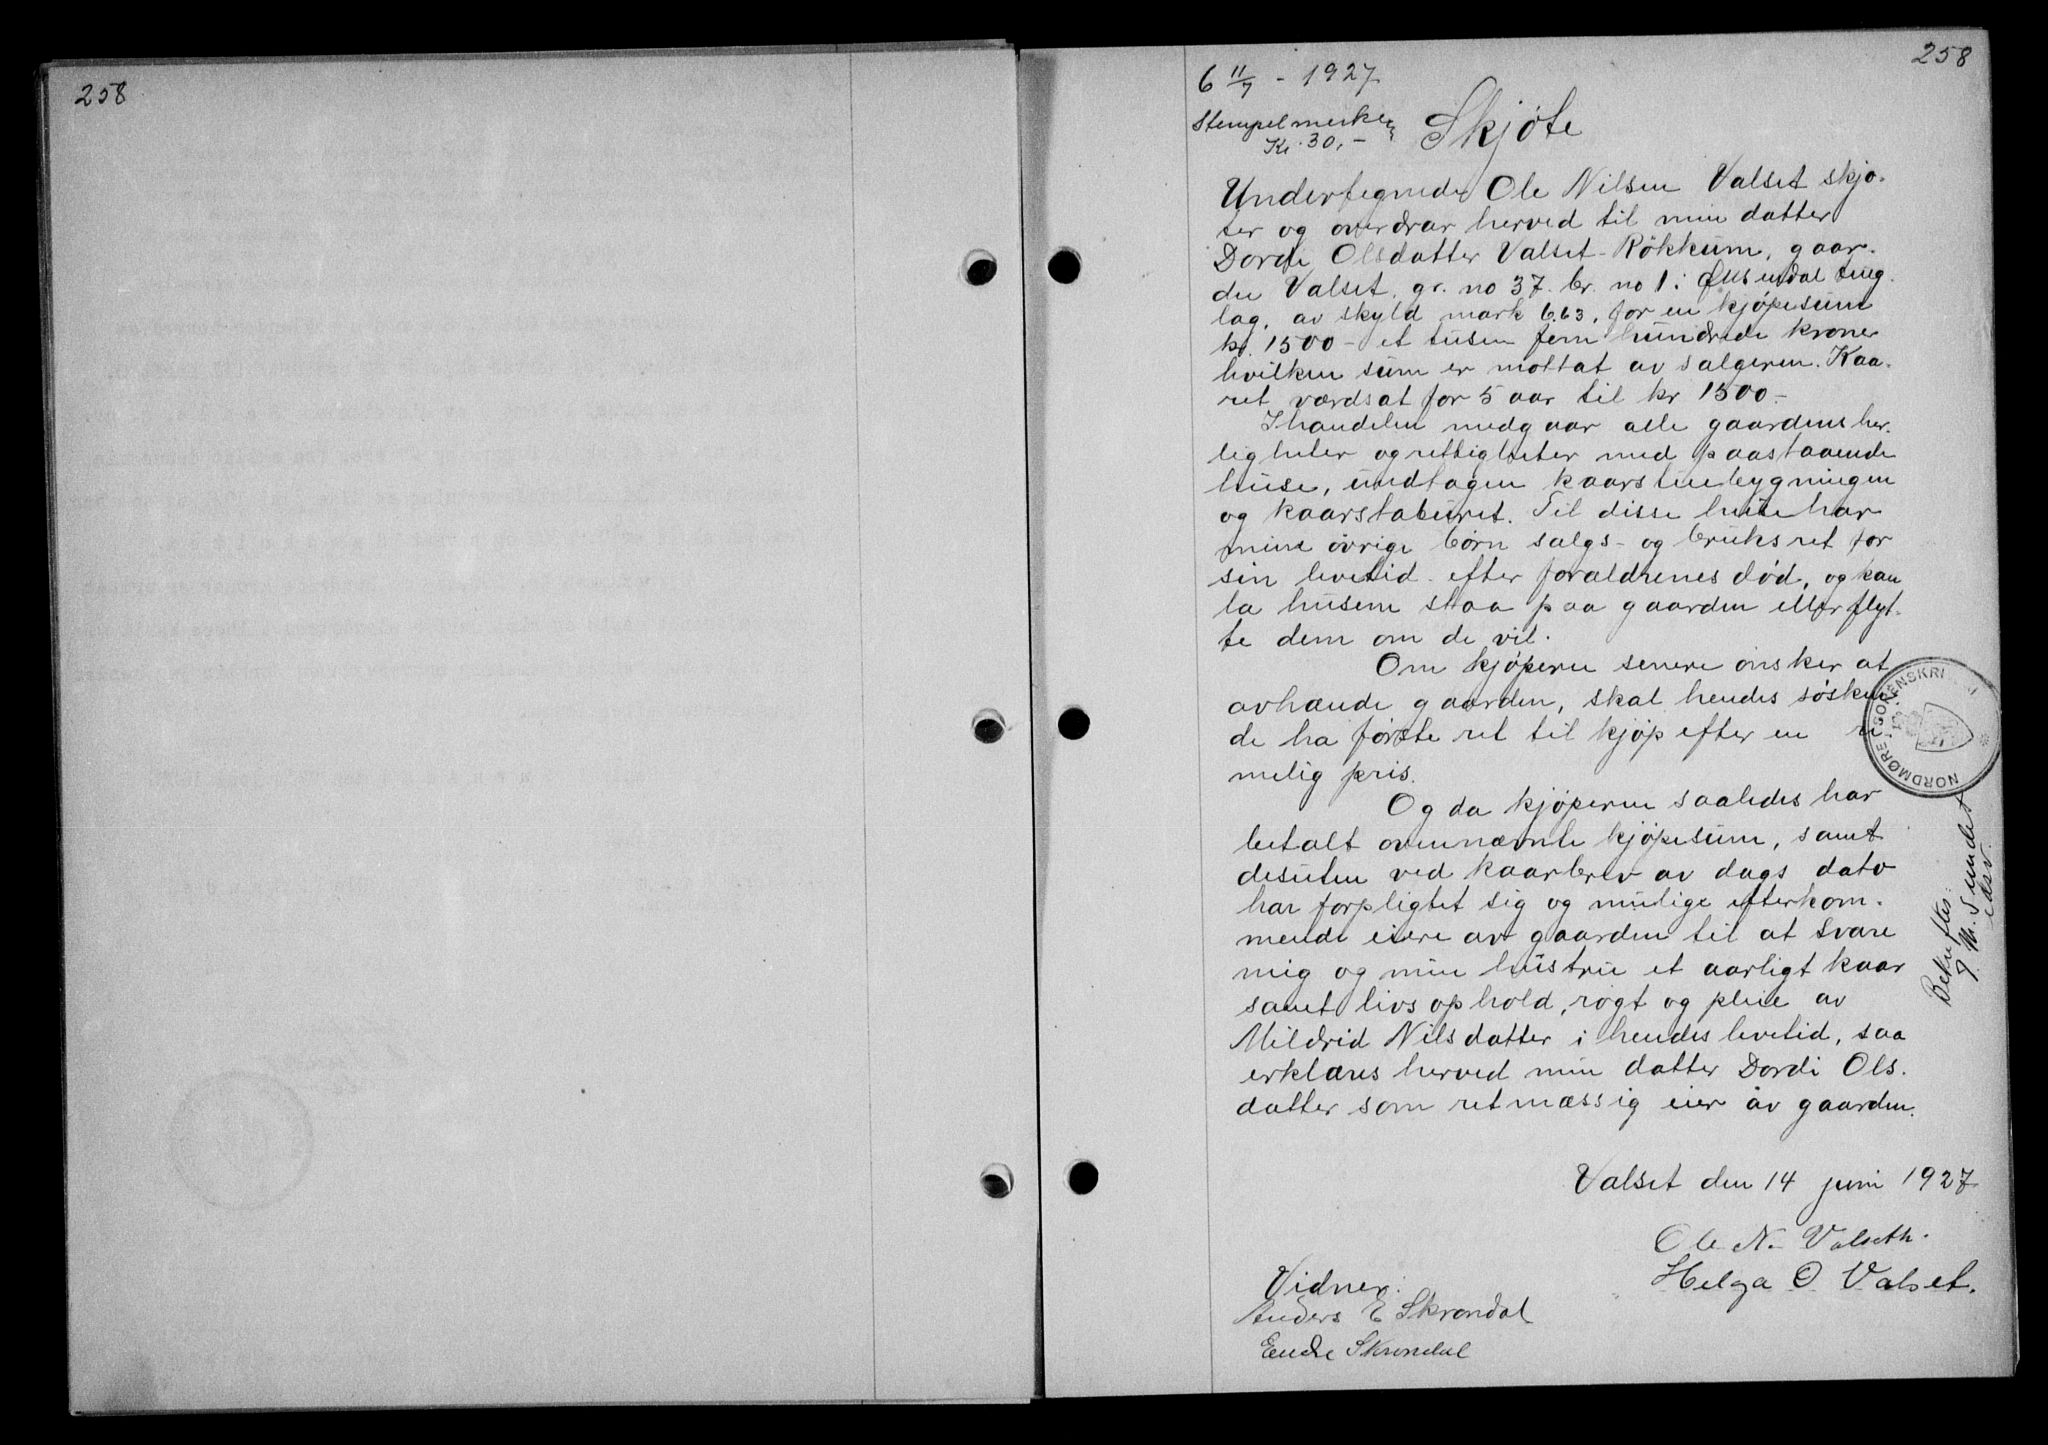 258
258
6 11/7 - 1927
Stempelmerker
Kr. 30,-
Skjøte
Undertegnede Ole Nilsen Valset skjø-
ter og overdrar herved til min datter
Dordi Olsdatter Valset-Rökkum, gaar-
den Valset, gr. no 37. br. no 1 i Øksendal ting-
lag, av skyld mark 6.63, for en kjøpesum
kr. 1500 - et tusen fem hundrede kroner
hvilken sum er mottat av sælgeren. Kaa-
ret værdsat for 5 aar til kr 1500.-
I handelen medgaar alle gaardens her-
ligheter og rettigheter med paastaaende
huse, undtagen kaarstuebygningen
og kaarstaburet. Til disse huse har
mine øvrige børn salgs- og bruksret for
sin levetid efter forældrenes død, og kan
la husene staa paa gaarden eller flyt-
te dem om de vil.
Om kjøperen senere ønsker at
avhænde gaarden, skal hendes søsken-
de ha første ret til kjøp efter en ri-
melig pris.
Og da kjøperen saaledes har
betalt ovennævnte kjøpesum, samt
desuten ved kaarbrev av dags dato
har forpligtet sig og mulige efterkom-
mende eiere av gaarden til at svare
mig og min hustru et aarligt kaar
samt livsophold, røgt og pleie av
Mildrid Nilsdatter i hendes levetid, saa
erklæres herved min datter Dordi Ols-
datter som retmæssig eier av gaarden.
Valset den 14 juni 1927
Ole N. Valseth.
Helga O Valset.
Vidner:
Anders E Skrondal
Endre Skrondal
NORDMØRE SORENSKRI
Bekreftes:
M. Sundet
edsv.